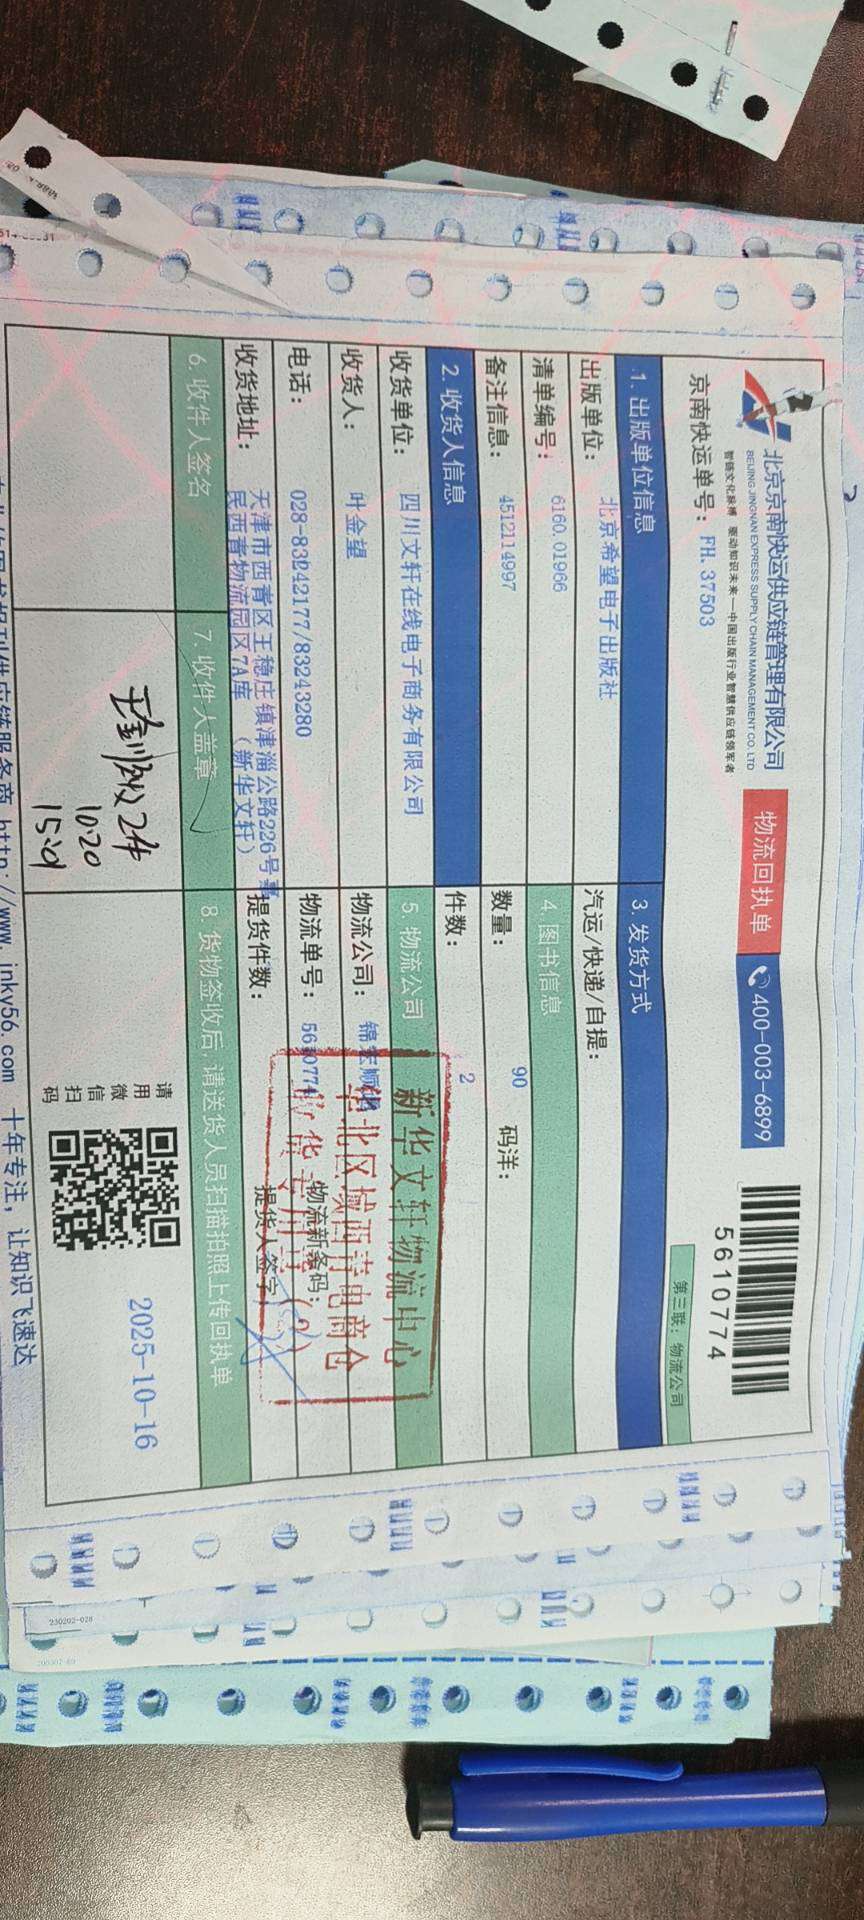 北京京南快运供应链管理有限公司
BEIJING JINGNAN EXPRESS SUPPLY CHAIN MANAGEMENT CO. LTD
智链文化脉搏 驱动知识未来—中国出版行业智慧供应链领军者
物流回执单
400-003-6899
5610774
京南快运单号: FH.37503
第三联: 物流公司
1. 出版单位信息
3. 发货方式
出版单位: 北京希望电子出版社
汽运/快递/自提:
清单编号: 6160.01966
4. 图书信息
备注信息: 4512114997
数量: 90 码洋:
2. 收货人信息
件数: 2
收货单位: 四川文轩在线电子商务有限公司
5. 物流公司
收货人: 叶金望
物流公司:
电话: 028-83242177/83243280
物流单号: 5610774
物流新条码:
收货地址: 天津市西青区王稳庄镇津淄公路226号惠
民西青物流园区7A库 (新华文轩)
提货件数:
提货人签字
新华文轩物流中心
华北区域西青电商仓
6. 收件人签名
7. 收件人盖章
8. 货物签收后, 请送货人员扫描拍照上传回执单
10.20
15:01
请用微信扫码
2025-10-16
http://www.jnky56.com 十年专注, 让知识飞速达
230202-028